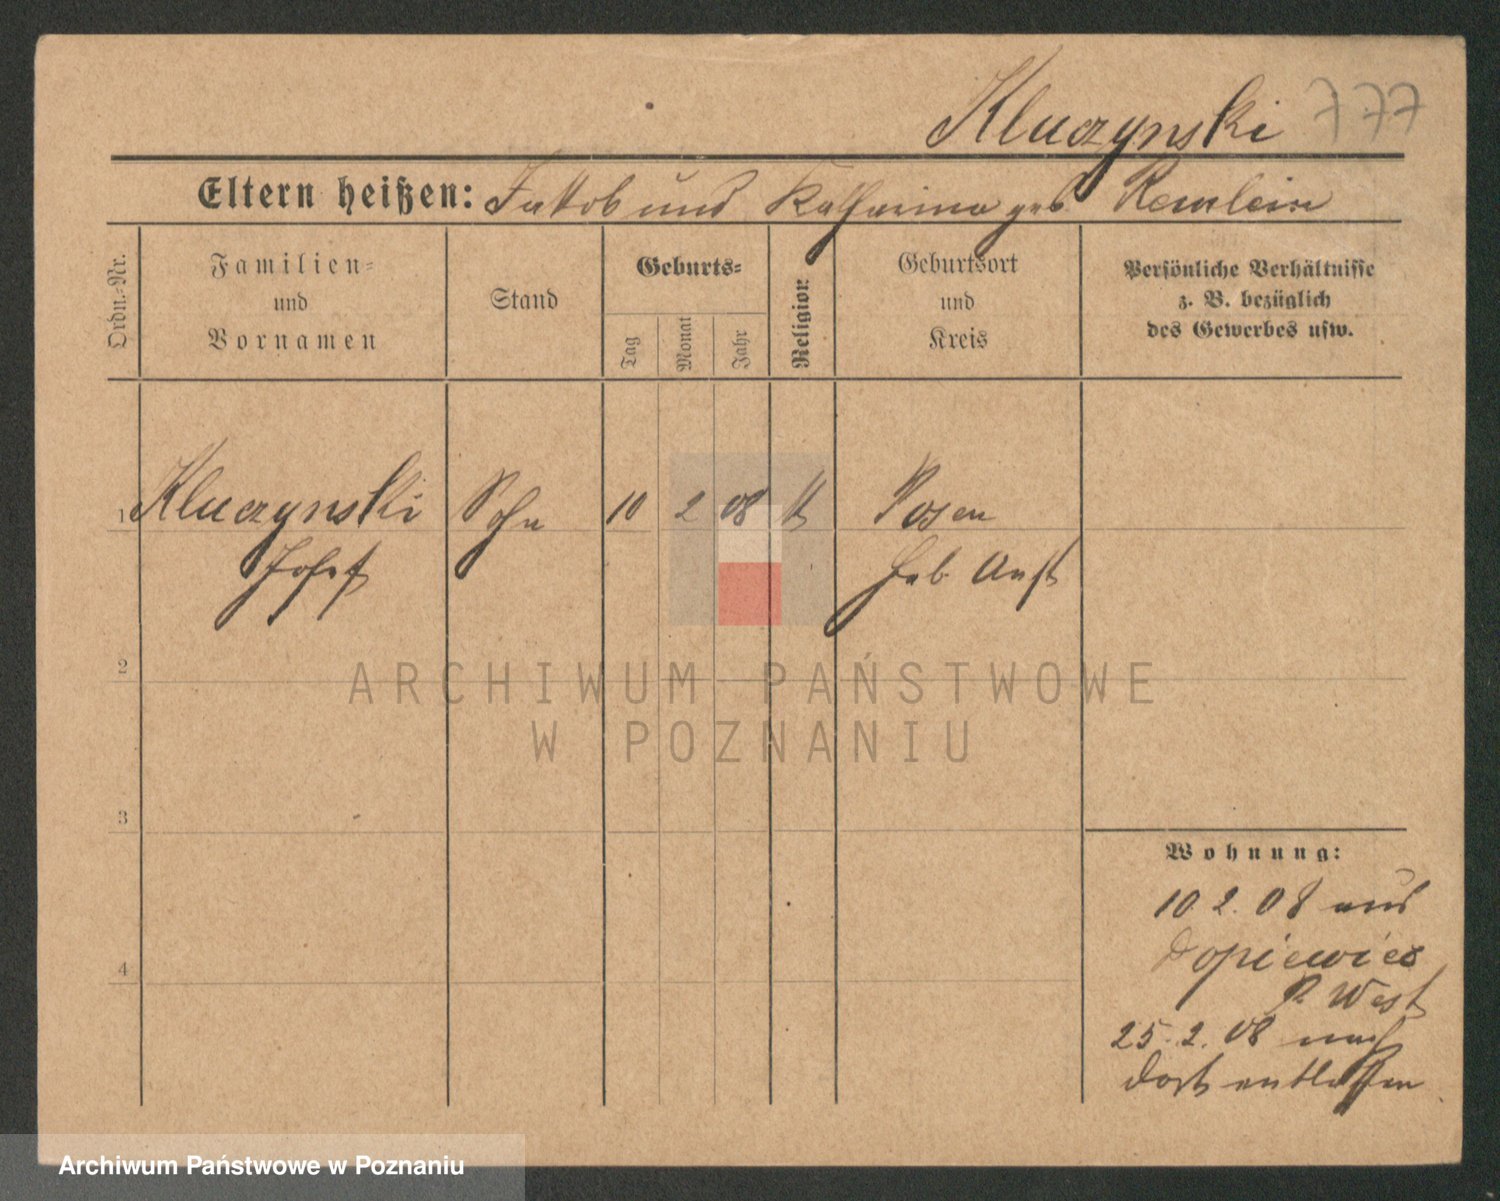 Kluczynski 777
Eltern heißen: Jakob und Katharina geb. Remlein
Ordn.-Nr.
Familien- und Vornamen
Stand
Geburts-
Tag
Monat
Jahr
Religion
Geburtsort und Kreis
Persönliche Verhältnisse
z. B. bezüglich
des Gewerbes usw.
1 Kluczynski Sohn 10 2 08 k Posen
Josef Heb. Anst
2
ARCHIWUM PAŃSTWOWE
W POZNANIU
3
Wohnung:
10.2.08 aus
Dopiewiec
P. West
4
25.2.08 nach
dort entlassen
Archiwum Państwowe w Poznaniu